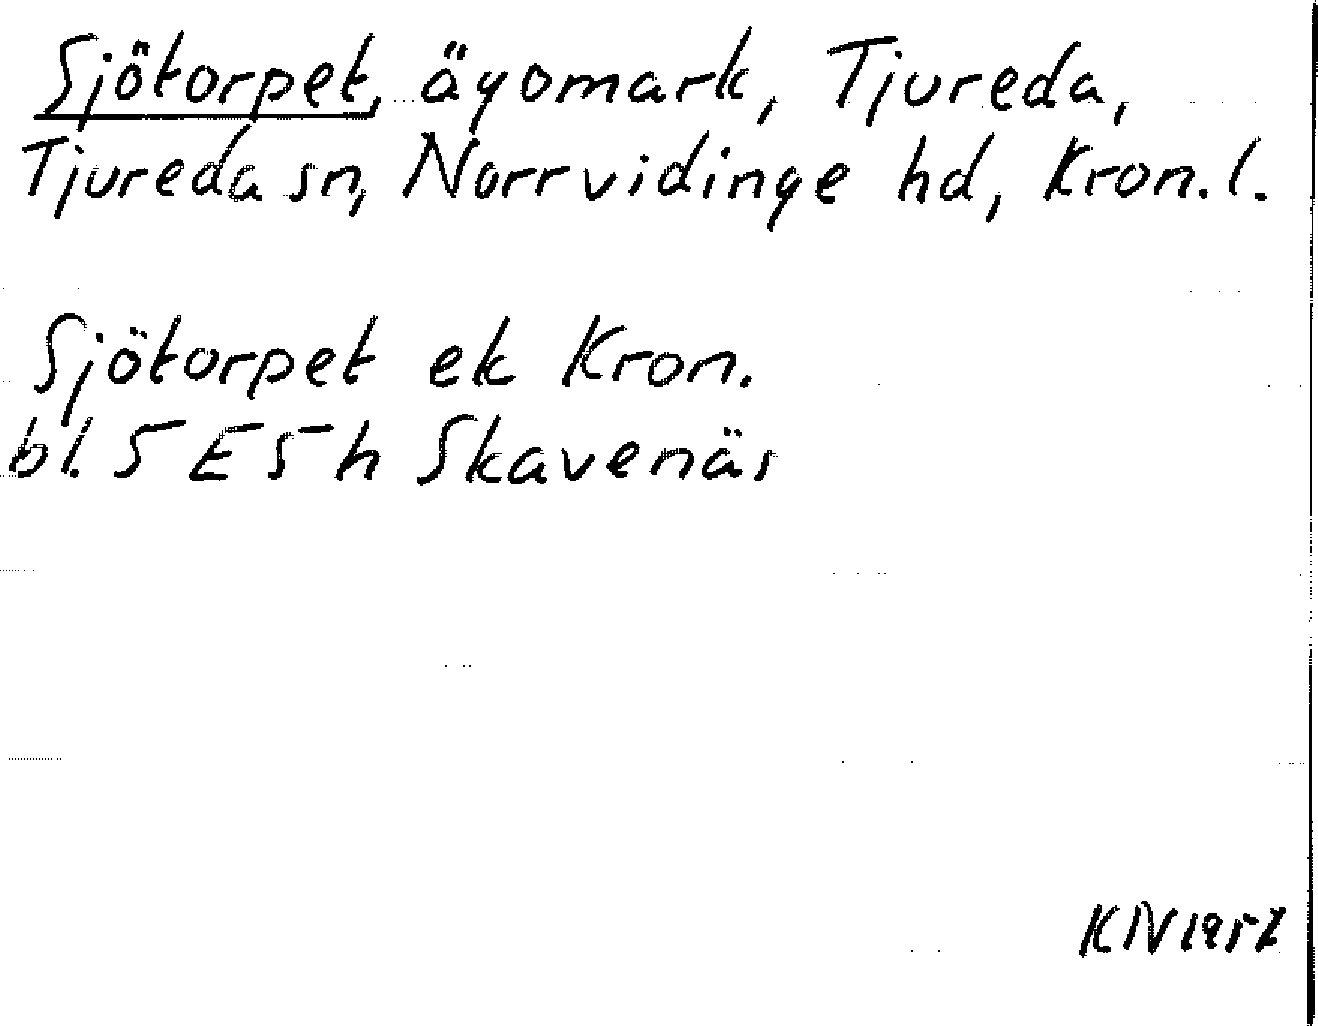 Sjötorpet, ägomark, Tjureda,
Tjureda sn, Norrvidinge hd, Kron. l.
Sjötorpet ek Kron.
bl. 5 E 5 h Skavenäs